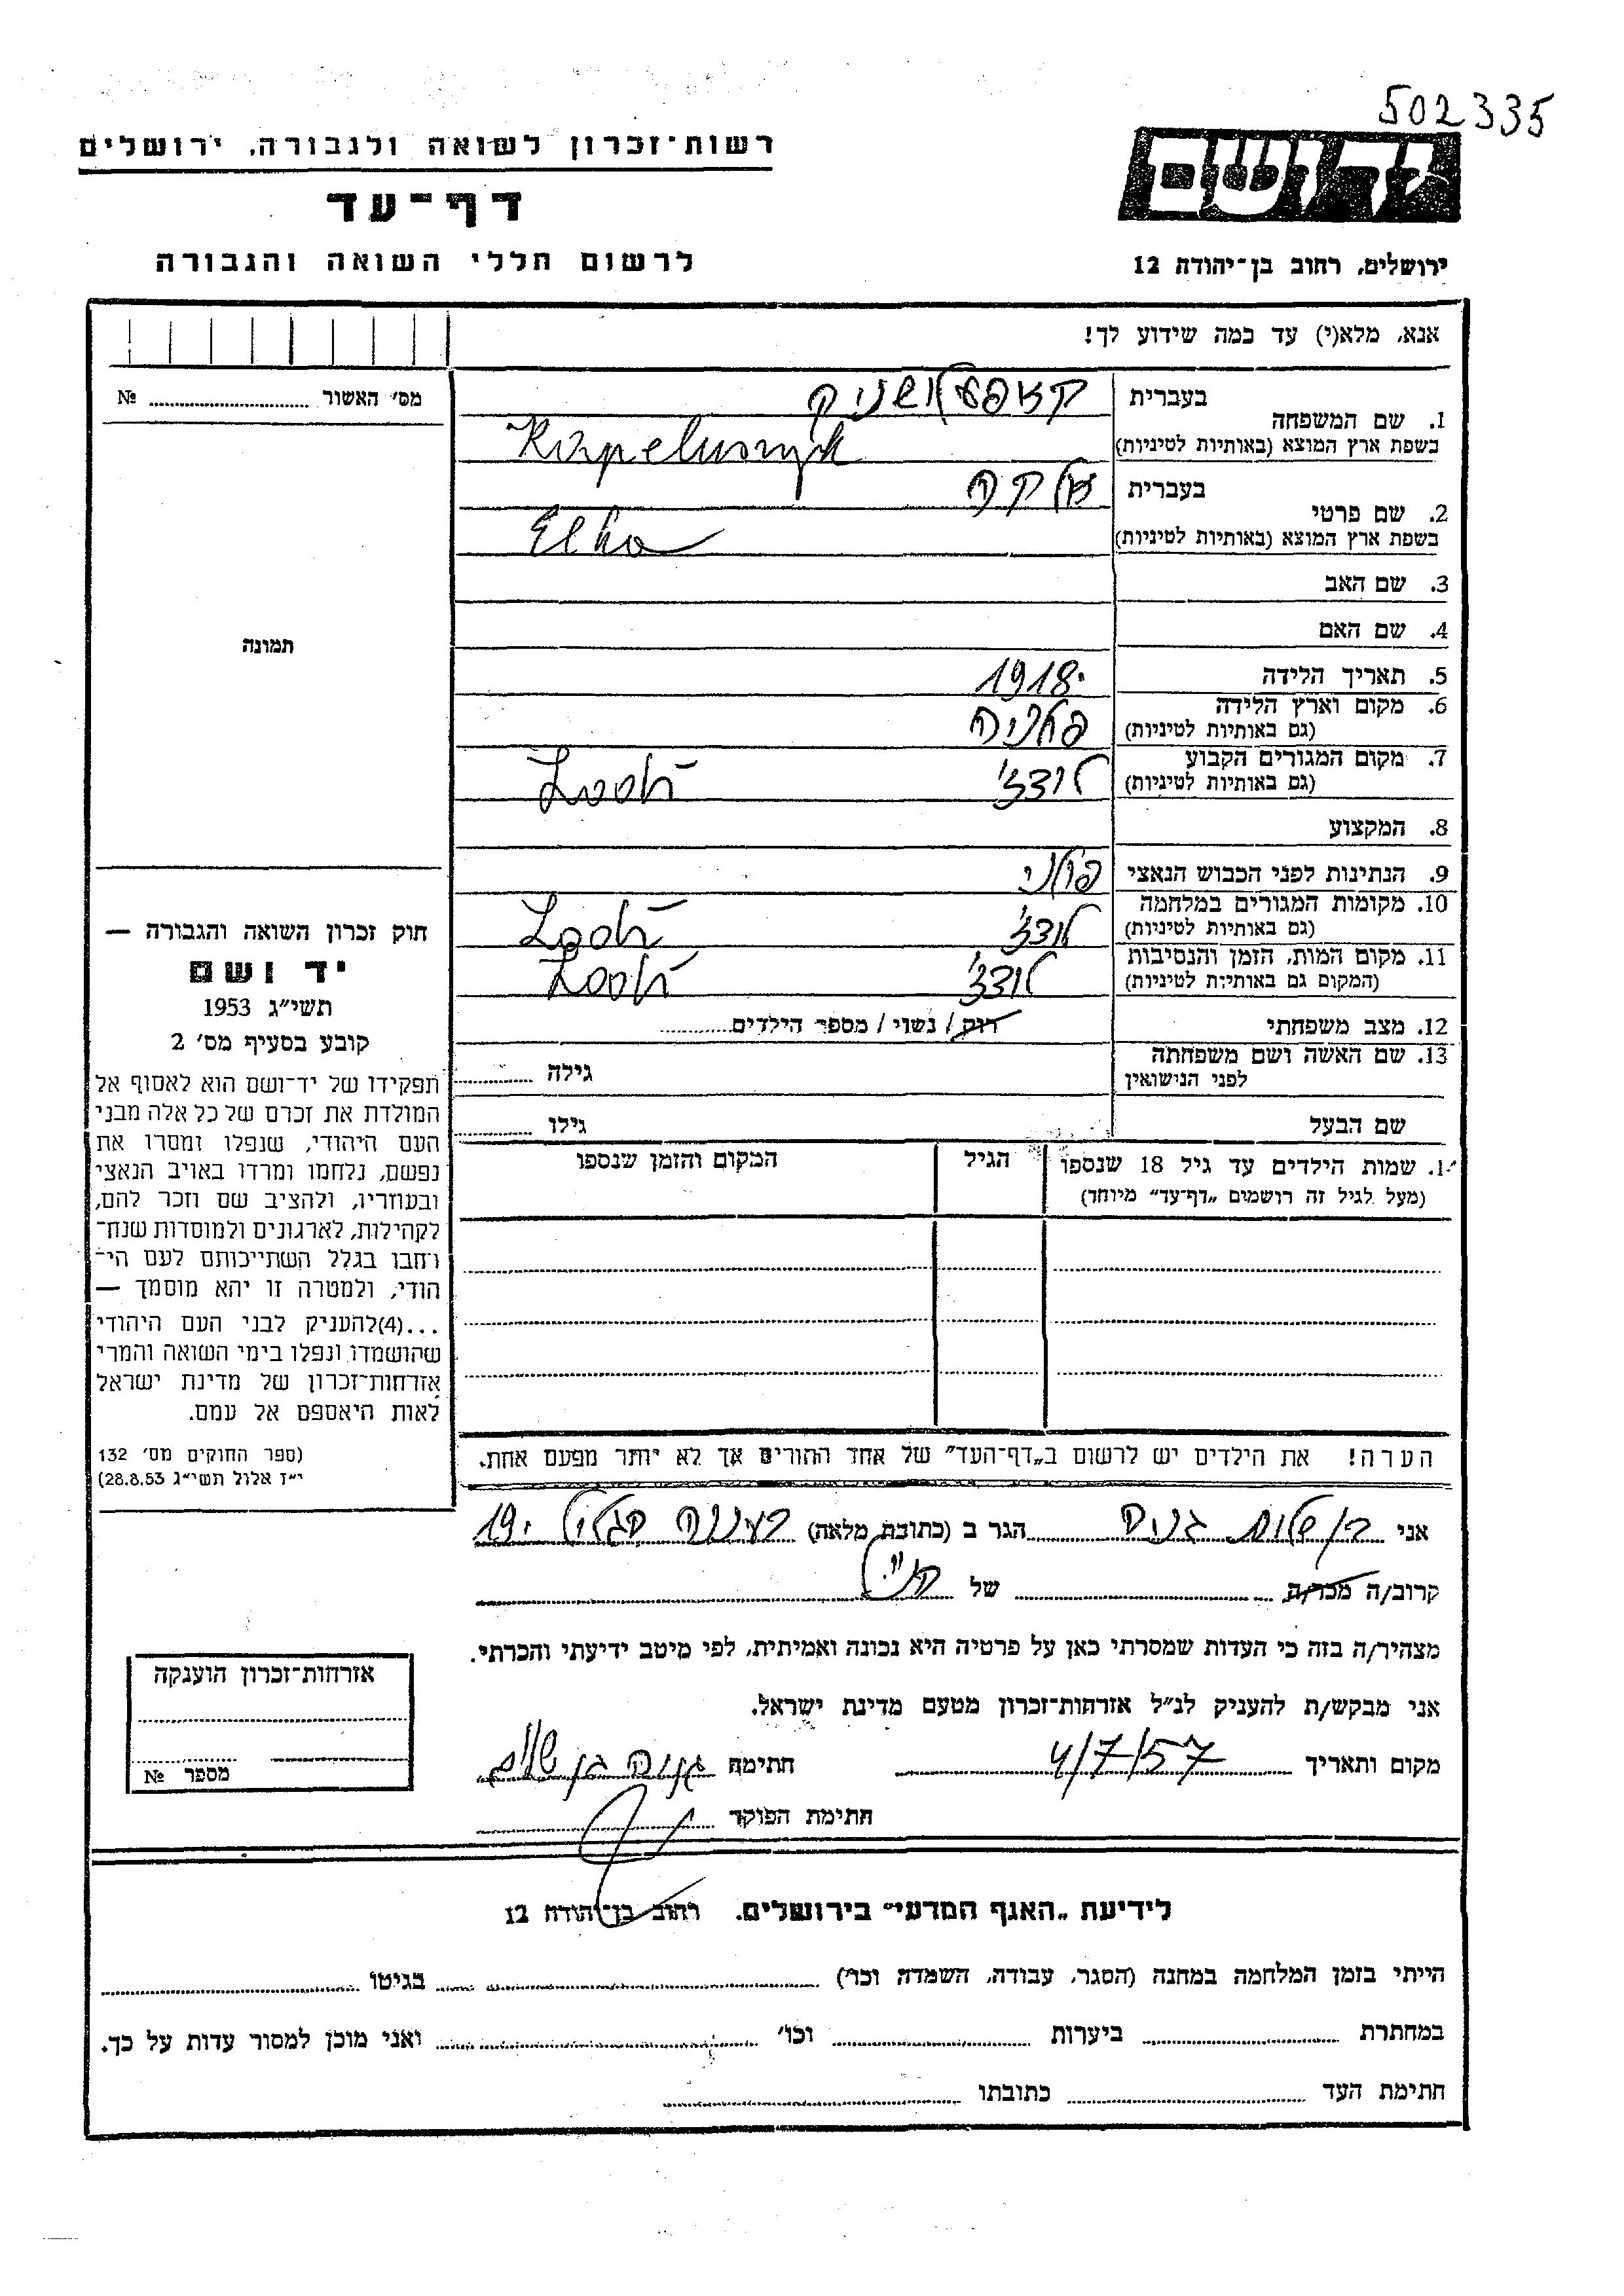 502335
יד ושם
רשות־זכרון לשואה ולגבורה, ירושלים
דף־עד
לרשום חללי השואה והגבורה
ירושלים, רחוב בן־יהודה 12
אנא, מלא(י) עד כמה שידוע לך!
מס׳ האשור ........ №
תמונה
חוק זכרון השואה והגבורה —
יד ושם
תשי״ג 1953
קובע בסעיף מס׳ 2
תפקידו של יד־ושם הוא לאסוף אל
המולדת את זכרם של כל אלה מבני
העם היהודי, שנפלו ומסרו את
נפשם, נלחמו ומרדו באויב הנאצי
ובעוזריו, ולהציב שם וזכר להם,
לקהילות, לארגונים ולמוסדות שנח־
רחבו בגלל השתייכותם לעם הי־
הודי, ולמטרה זו יהא מוסמך —
...(4)להעניק לבני העם היהודי
שהושמדו ונפלו בימי השואה והמרי
אזרחות־זכרון של מדינת ישראל
לאות היאספם אל עמם.
(ספר החוקים מס׳ 132
י״ז אלול תשי״ג 28.8.53)
בעברית קאפעלושניק
1. שם המשפחה
בשפת ארץ המוצא (באותיות לטיניות) Kapelusznyk
בעברית אלקה
2. שם פרטי
בשפת ארץ המוצא (באותיות לטיניות) Elka
3. שם האב
4. שם האם
5. תאריך הלידה 1918
6. מקום וארץ הלידה פולניה
(גם באותיות לטיניות)
7. מקום המגורים הקבוע לודז׳
(גם באותיות לטיניות)
8. המקצוע
9. הנתינות לפני הכבוש הנאצי פולני
10. מקומות המגורים במלחמה לודז׳
(גם באותיות לטיניות)
11. מקום המות, הזמן והנסיבות לודז׳
(המקום גם באותיות לטיניות)
12. מצב משפחתי רוק / נשוי / מספר הילדים
13. שם האשה ושם משפחתה גילה
לפני הנישואין
שם הבעל גילו
1. שמות הילדים עד גיל 18 שנספו הגיל המקום והזמן שנספו
(מעל לגיל זה רושמים „דף־עד״ מיוחד)
הערה! את הילדים יש לרשום ב„דף־העד״ של אחד ההורים אך לא יותר מפעם אחת.
אני בן שלום גניה הגר ב (כתובת מלאה) רעננה
קרוב/ה מכר/ה של
מצהיר/ה בזה כי העדות שמסרתי כאן על פרטיה היא נכונה ואמיתית, לפי מיטב ידיעתי והכרתי.
אני מבקש/ת להעניק לנ״ל אזרחות־זכרון מטעם מדינת ישראל.
מקום ותאריך 4/7/57 חתימה גניה בן שלום
חתימת הפוקד
אזרחות־זכרון הוענקה
מספר №
לידיעת „האגף המדעי״ בירושלים. רחוב בן־יהודה 12
הייתי בזמן המלחמה במחנה (הסגר, עבודה, השמדה וכו׳) בגיטו
במחתרת ביערות וכו׳ ואני מוכן למסור עדות על כך.
חתימת העד כתובתו